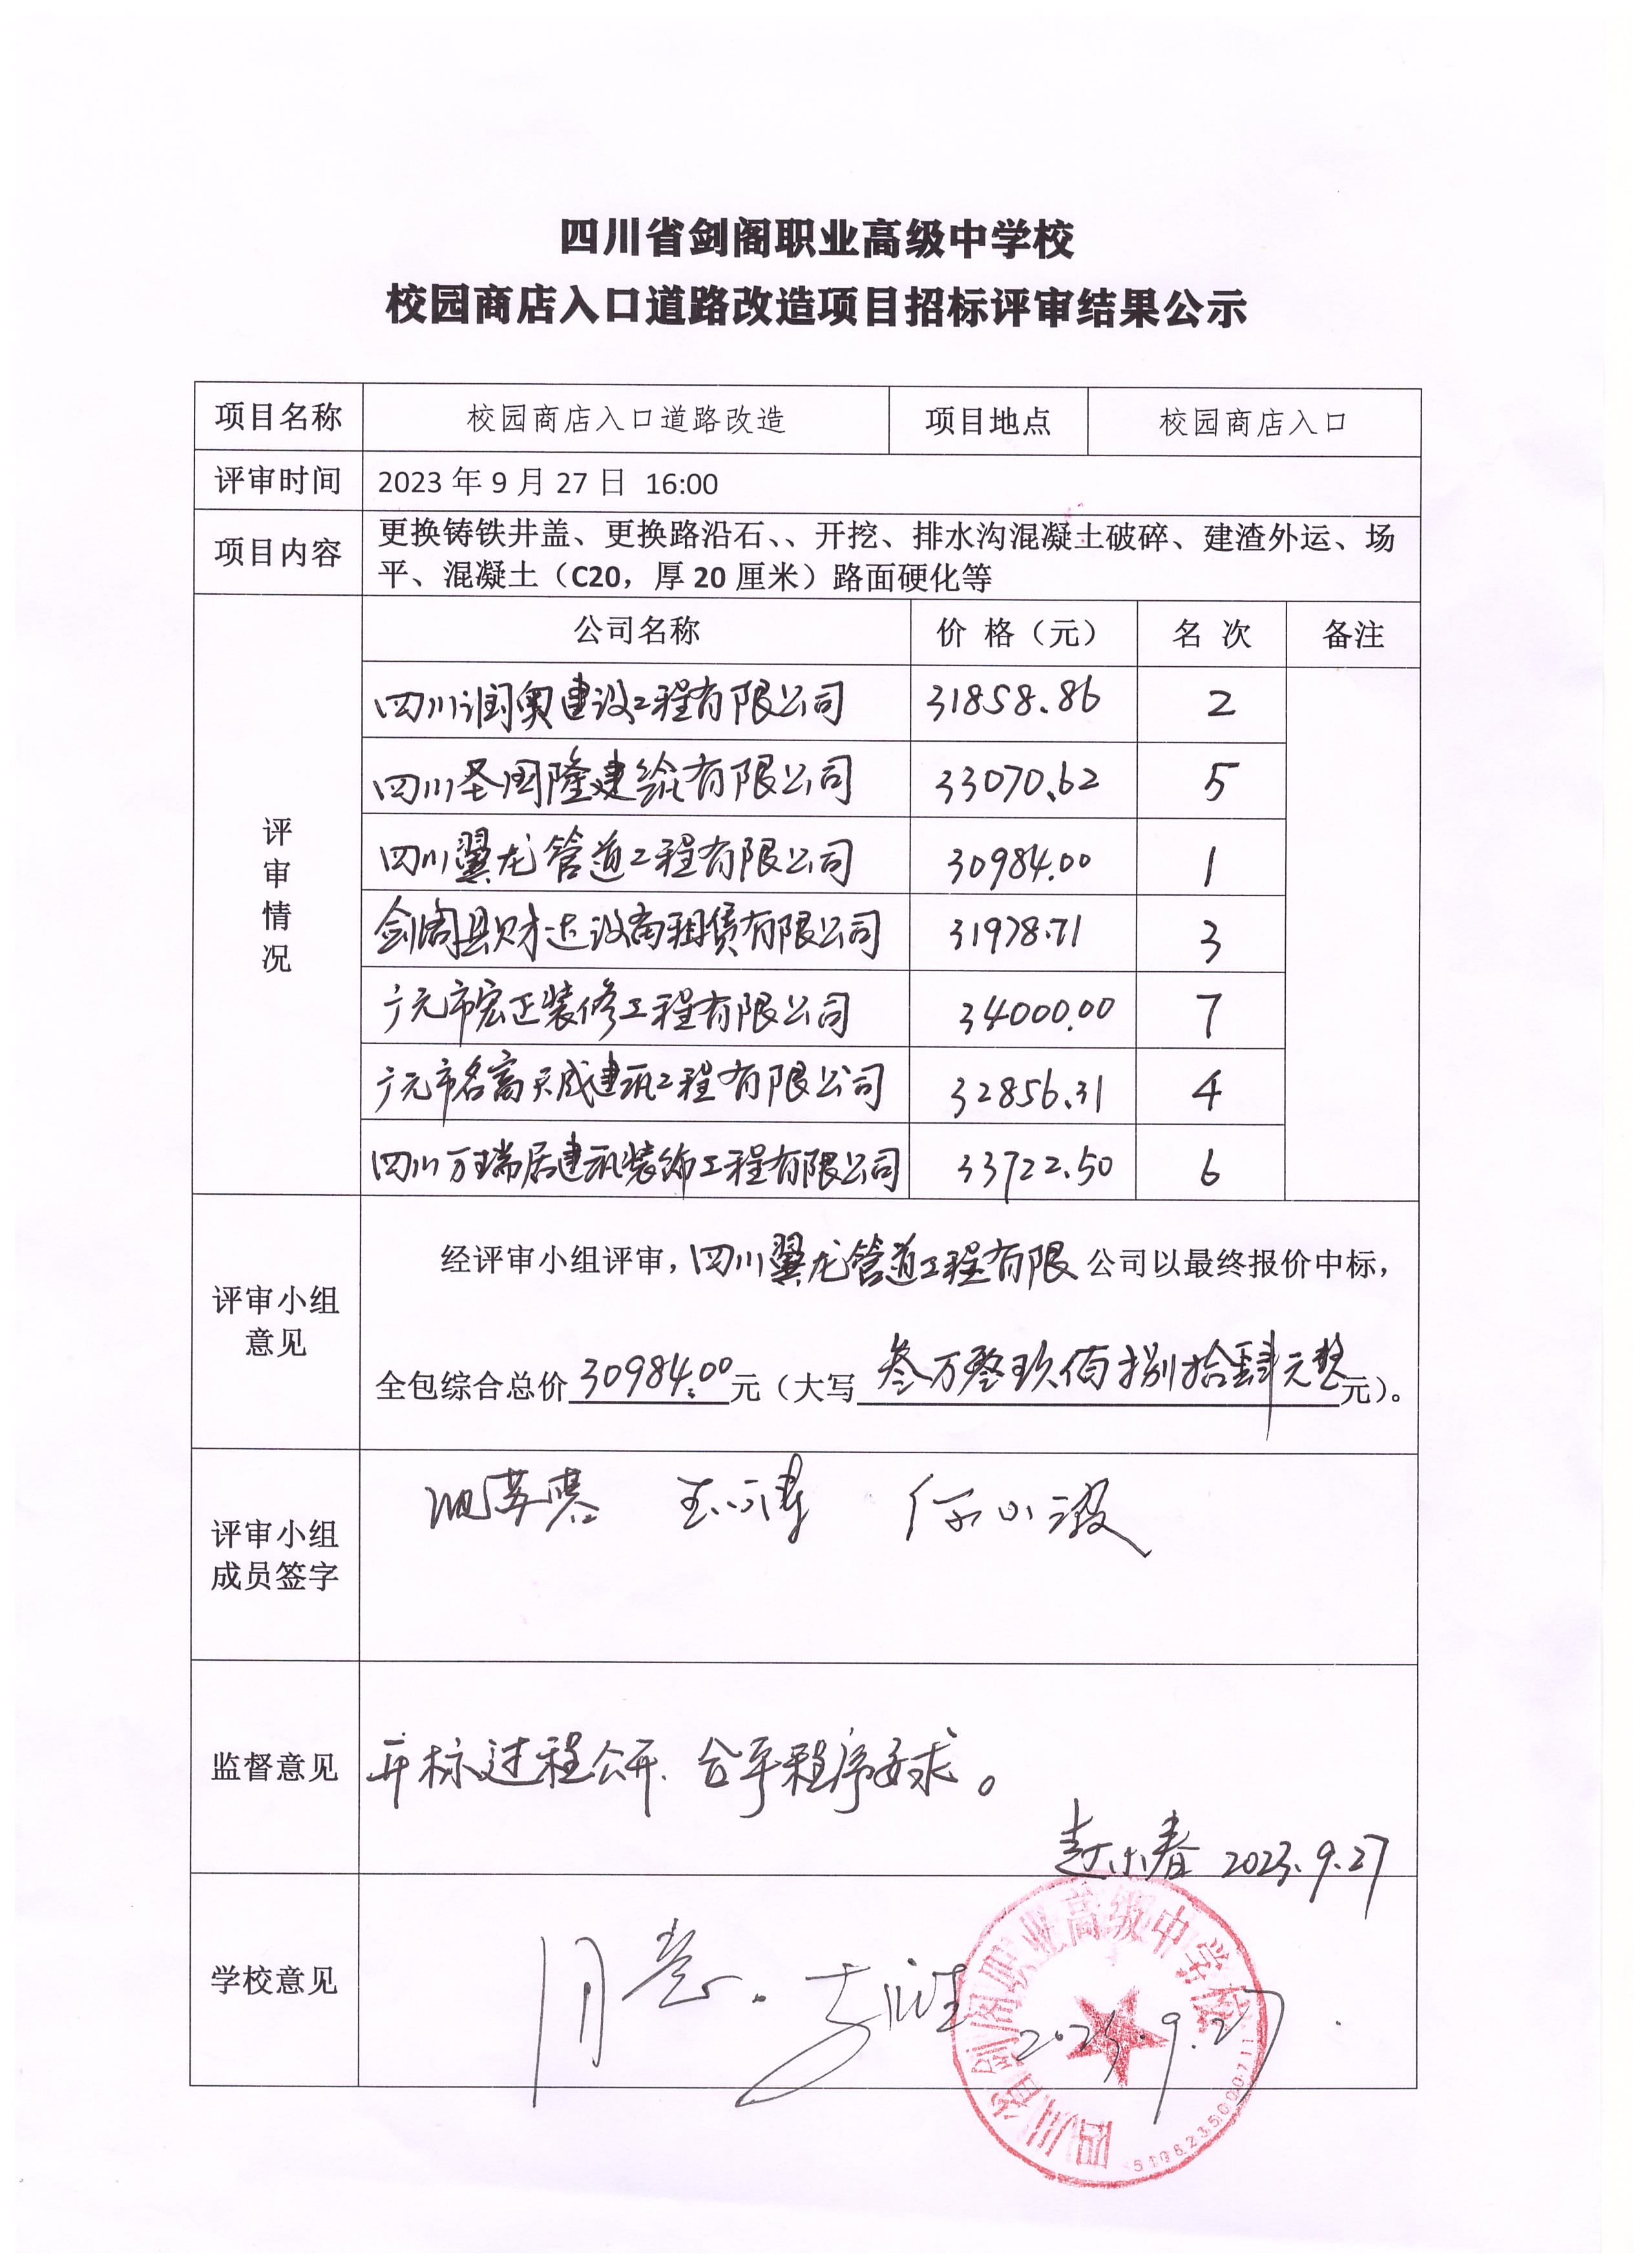 四川省剑阁职业高级中学校
校园商店入口道路改造项目招标评审结果公示
项目名称 校园商店入口道路改造 项目地点 校园商店入口
评审时间 2023 年 9 月 27 日 16:00
项目内容 更换铸铁井盖、更换路沿石、、开挖、排水沟混凝土破碎、建渣外运、场
平、混凝土（C20，厚 20 厘米）路面硬化等
评审情况 公司名称 价 格（元） 名 次 备注
四川润奥建设工程有限公司 31858.86 2
四川圣国隆建筑有限公司 33070.62 5
四川翼龙管道工程有限公司 30984.00 1
剑阁县财达设备租赁有限公司 31978.71 3
广元市宏正装修工程有限公司 34000.00 7
广元市名富天成建筑工程有限公司 32856.31 4
四川万瑞居建筑装饰工程有限公司 33722.50 6
评审小组
意见
经评审小组评审，四川翼龙管道工程有限 公司以最终报价中标，
全包综合总价 30984.00 元（大写 叁万零玖佰捌拾肆元整 元）。
评审小组
成员签字
监督意见 开标过程公开、合乎程序要求。
赵小春 2023.9.27
学校意见 同意。
2023.9.27
四川省剑阁职业高级中学校